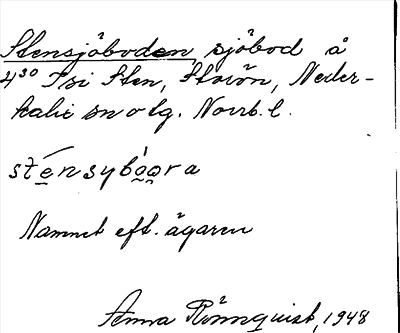 Stensjöboden, sjöbod å
4³⁰ Isi Sten, Storön, Neder-
kalix sn o tg. Norrb. l.
Namnet eft. ägaren
Anna Rönnquist, 1948